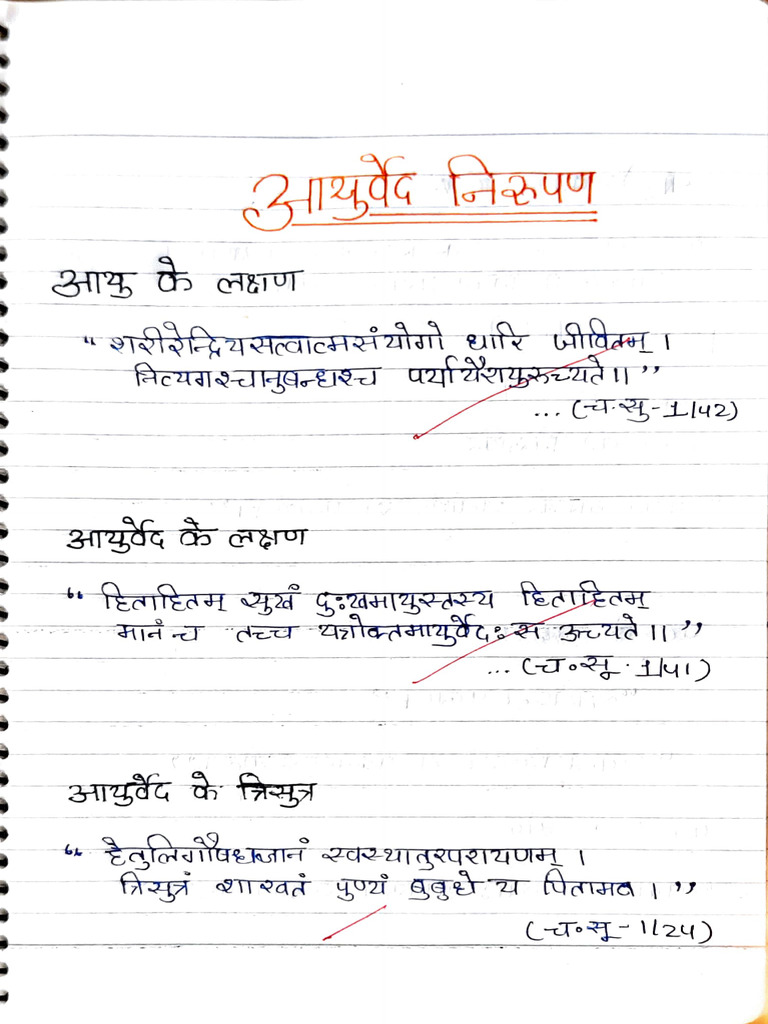 आयुर्वेद निरुपण
आयु के लक्षण
“ शरीरेन्द्रियसत्वात्मसंयोगो धारि जीवितम् ।
नित्यगश्चानुबन्धश्च पर्यायैरायुरुच्यते ॥ ”
... (च.सु - 1/42)
आयुर्वेद के लक्षण
“ हिताहितम् सुखं दुःखमायुस्तस्य हिताहितम्
मानं च तच्च यत्रोक्तमायुर्वेदः स उच्यते ॥ ”
... (च॰सू. 1/41)
आयुर्वेद के त्रिसुत्र
“ हेतुलिगौषधज्ञानं स्वस्थातुरपरायणम् ।
त्रिसुत्रं शाश्वतं पुण्यं बुबुधे य पितामह । ”
(च॰सू - 1/24)